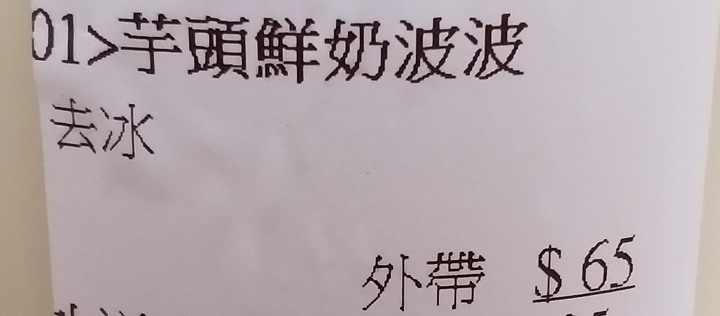 01>芋頭鮮奶波波
去冰
外帶 $65